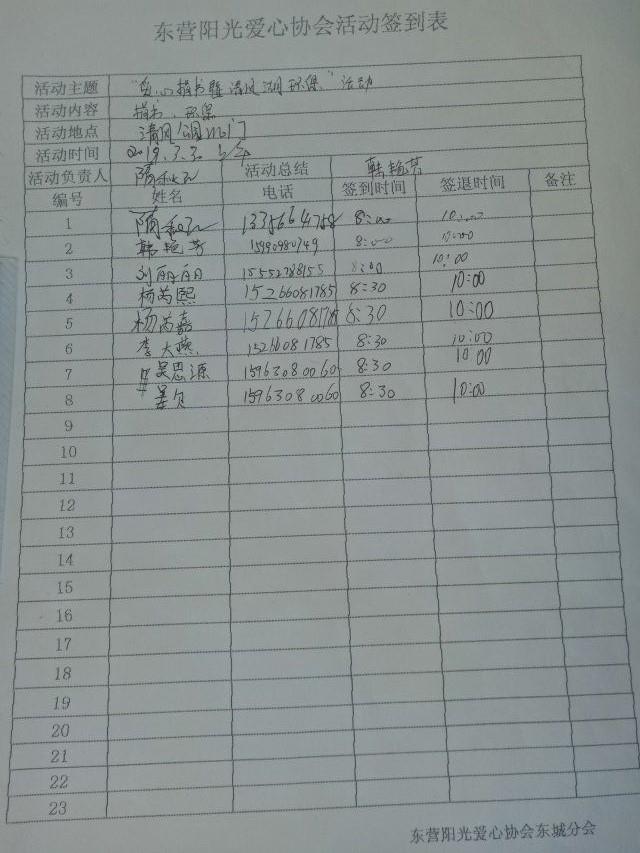 东营阳光爱心协会活动签到表
活动主题 捐书 清风湖环保"活动
活动内容 捐书、环保
活动地点 清风公园
活动时间 2019.3.3. 上午
活动负责人 隋 活动总结 韩艳芳
编号 姓名 电话 签到时间 签退时间 备注
1 隋 8:00 10:00
2 韩艳芳 15990980749 8:00 10:00
3 刘丽丽 15552788155 8:00 10:00
4 杨芮熙 15266081785 8:30 10:00
5 杨芮嘉 8:30 10:00
6 李大燕 15266081785 8:30 10:00
7 吴思源 15963080060 8:30 10:00
8 15963080060 8:30 10:00
9
10
11
12
13
14
15
16
17
18
19
20
21
22
23
东营阳光爱心协会东城分会